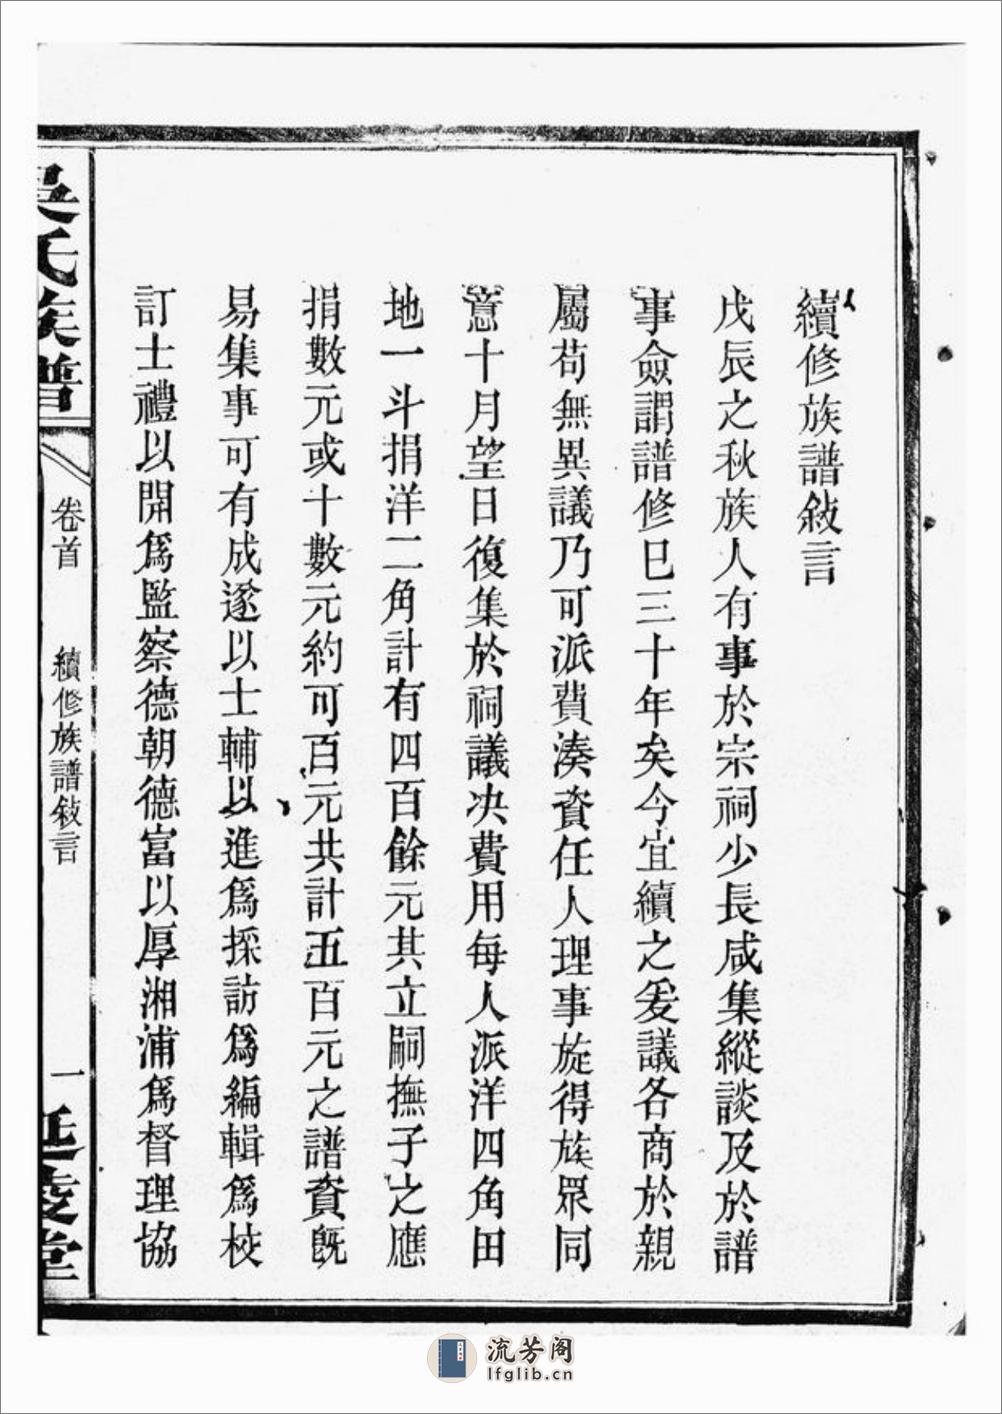 續修族譜敍言
戊辰之秋族人有事於宗祠少長咸集縱談及於譜
事僉謂譜修已三十年矣今宜續之爰議各商於親
屬苟無異議乃可派費湊資任人理事旋得族眾同
意十月望日復集於祠議决費用每人派洋四角田
地一斗捐洋二角計有四百餘元其立嗣撫子之應
捐數元或十數元約可百元共計五百元之譜資既
易集事可有成遂以士輔以進爲採訪爲編輯爲校
訂士禮以開爲監察德朝德富以厚湘浦爲督理協
吳氏族譜
卷首
續修族譜敍言
一
延陵堂
流芳阁
lfglib.cn